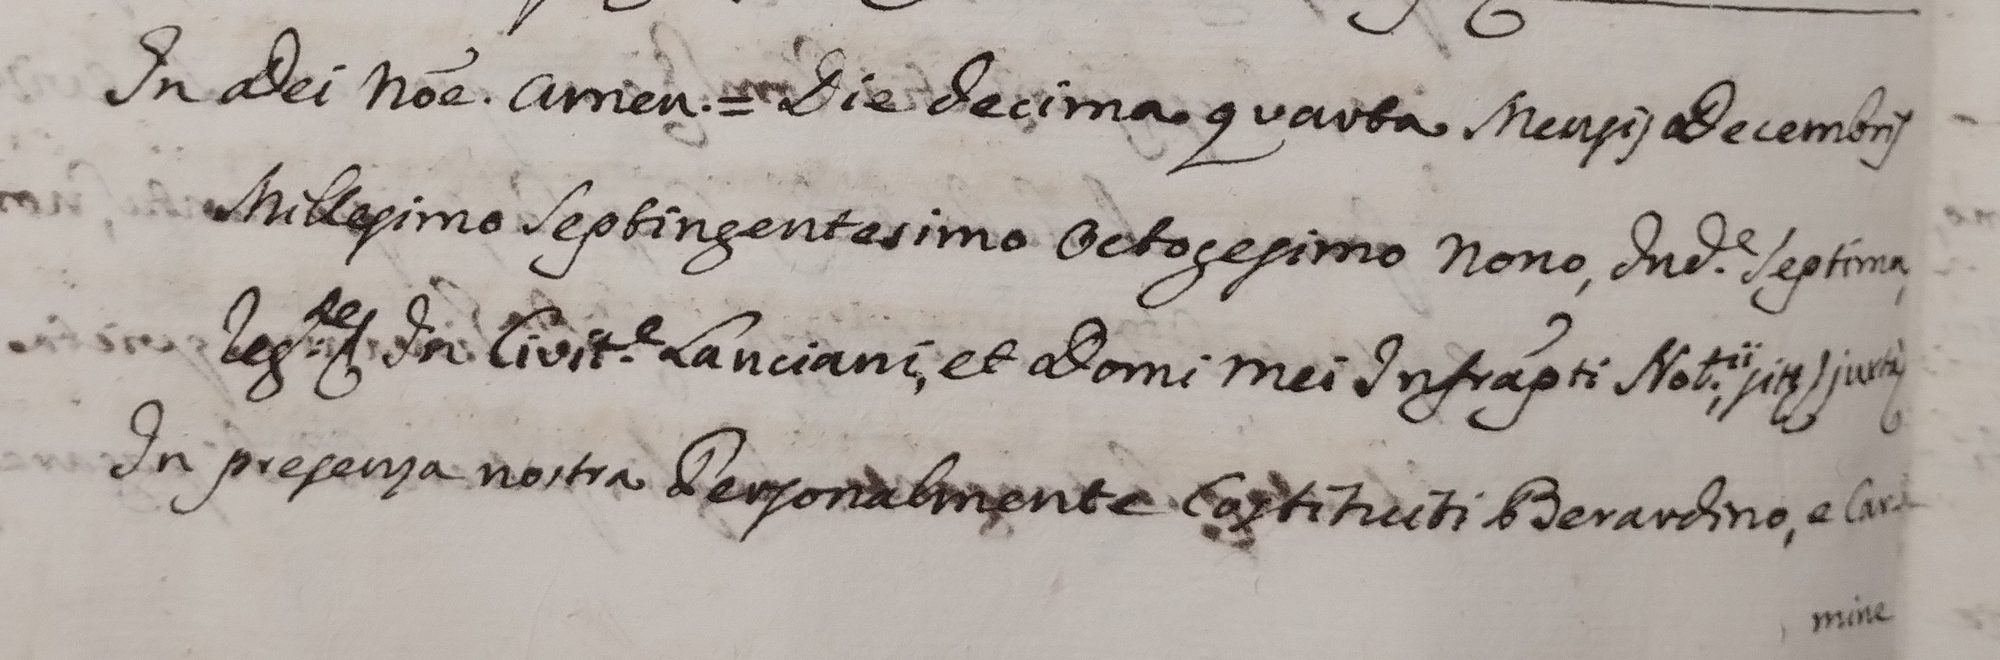 In Dei Nōe. Amen. = Die decima quarta Mensis Decembris
Millesimo Septingentesimo Octogesimo Nono, Ind.e Septima,
In Civit.e Lanciani, et Domi mei Infrāpti Not.ii, sitę juxtà
In presenza nostra Personalmente Costituiti Berardino, e Car-
mine